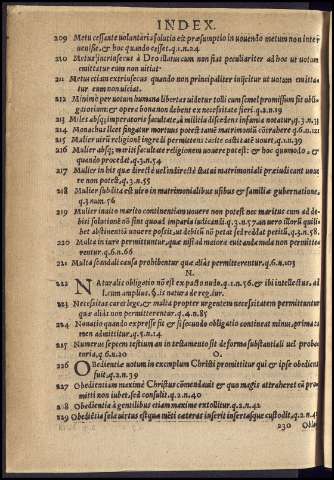 INDEX.
209 Metu cessante voluntaria solutio est præsumptio in vouendo metum non inter
uenisse, & hoc quando cesset. q.1.n.24
210 Metus intrinsecus à Deo illatus cum non fiat peculiariter ad hoc ut votum
emittatur eum non uitiat
211 Metus etiam extrinsecus quando non principaliter iniicitur ut votum emitta-
tur eum non uiciat.
212 Minimè per uotum humana libertas uidetur tolli cum semel promissum sit obli-
gatorium: & opera bona non debent ex necessitate fieri. q.2.n.19
213 Miles absq; imperatoris facultate, à militia discedens infamia notatur, q.3.n.31
214 Monachus licet fingatur mortuus potest tamē matrimoniū cōtrahere q.6.n.121
215 Mulier uirū religionē ingredi permittens tacite castitatē uouet, q.1.n.39
216 Mulier absq; mariti facultate religionem uouere potest: & hoc quomodo, &
quando procedat, q.3.n.54
217 Mulier in his quæ directè uel indirectè statui matrimoniali præiudicant uoue
re non potest, q.3.n.55
218 Mulier subdita est uiro in matrimonialibus usibus & familiæ gubernatione,
q.3.num.56
219 Mulier inuito marito continentiam uouere non potest nec maritus cum ad de-
biti solutionē nō sint quoad imparia iudicandi. q.3.n.57. an uero illorū quili-
bet abstinentiā uouere possit, ut debitū nō petat sed reddat petiti, q.3.n.58.
220 Multa in iure permittuntur, quæ nisi ad maiora euitanda mala non permitte-
rentur. q.6.n.66
221 Multa scandali causa prohibentur quæ aliàs permitterentur. q.6.n.103
N.
222 NAturalis obligatio nō est ex pacto nudo. q.1.n.56, & ibi intellectus, ad
l. cum amplius. §. is natura de reg. iur.
223 Necessitas caret lege, & multa propter urgentem necessitatem permittuntur
quæ aliàs non permitterentur. q.4.n.85
224 Negatio quando expresse fit & si secundo obligatio contineat minus, prima ta
men admittitur, q.5.n.14
225 Numerus septem testium an in testamento sit de forma substantiali uel proba-
toria, q.6.n.20
O.
226 OBedientiæ uotum in exemplum Christi promittitur qui & ipse obedient
fuit, q.2.n.39
227 Obedientiam maximè Christus cōmendauit & quo magis attraheret eā pro-
mitti non iubet, sed consulit. q.2.n.40
228 Obedientia à gentilibus etiam maxime extollitur. q.2.n.42
229 Obediētia sola uirtus est quæ mēti cæteras inserit insertasque custodit, q.2.n.4
230 Obie